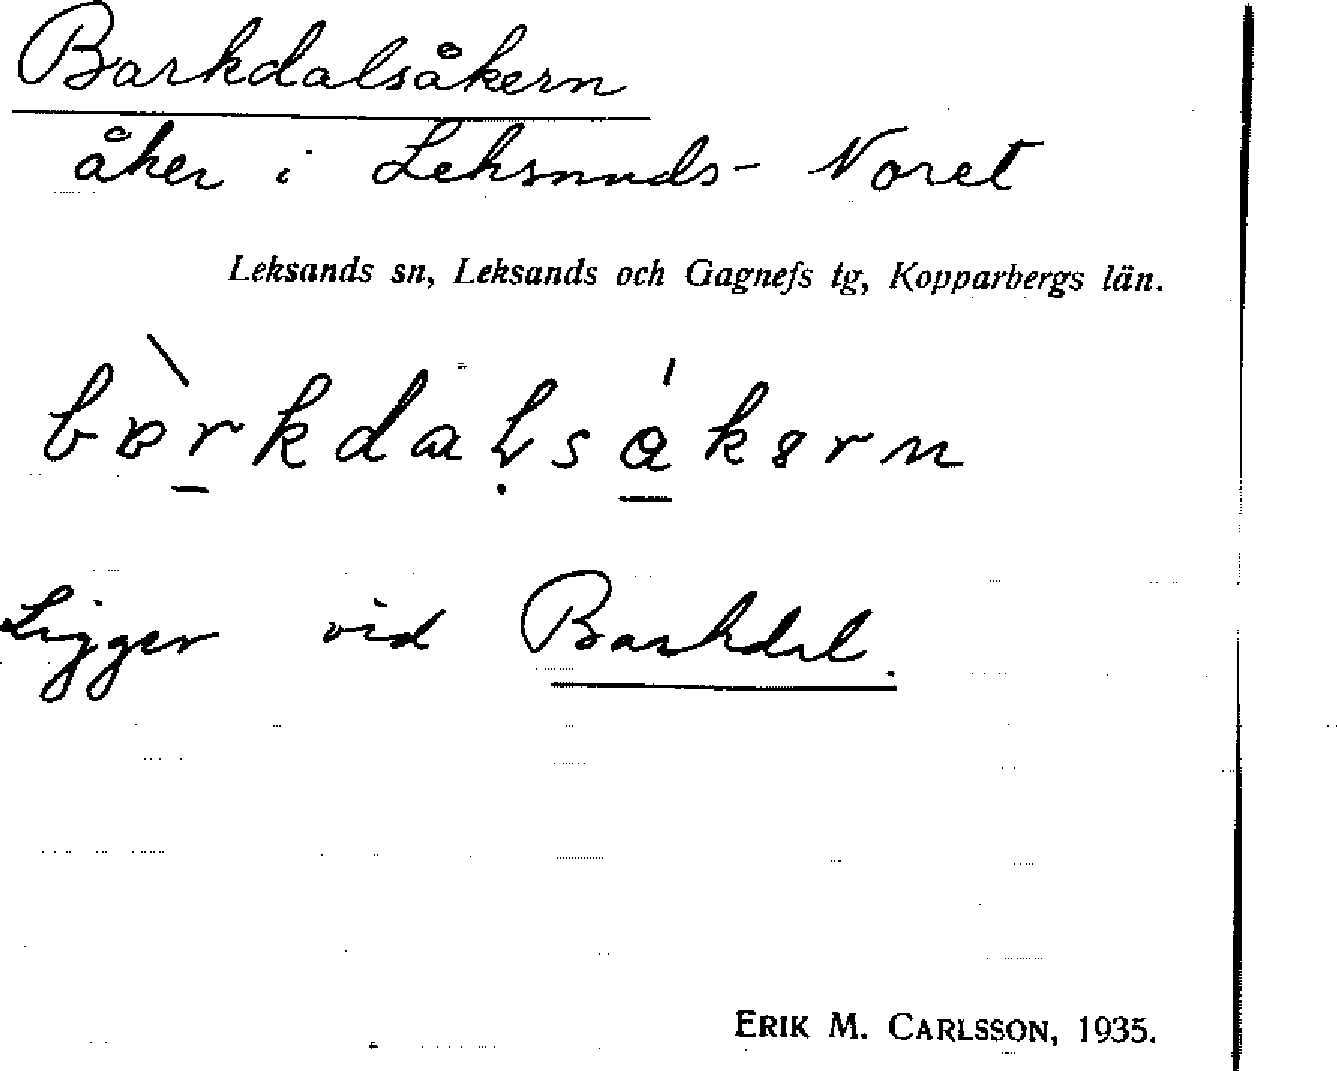 Barkdalsåkern
åker i Leksands-Noret
Leksands sn, Leksands och Gagnefs tg, Kopparbergs län.
Ligger vid Barkdal.
ERIK M. CARLSSON, 1935.